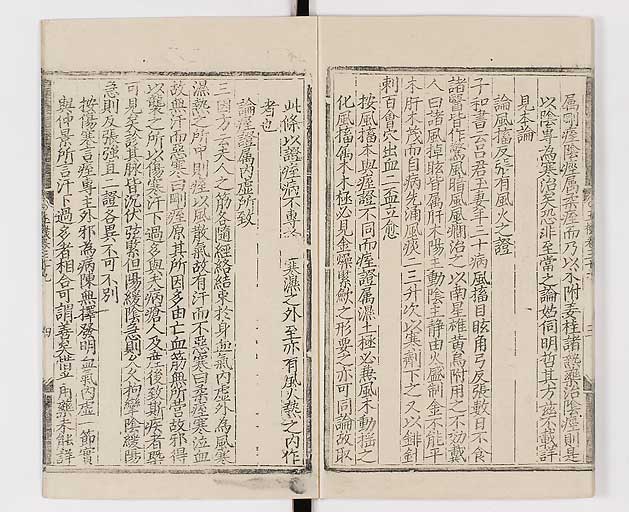 属剛痓陰痓属柔痓而乃以不附姜桂諸熱藥治陰痓則是
以陰專為寒治矣恐非至當之論姑伺明哲其方玆不載詳
見本論
論風搐反張有風火之證
子和書云吕君玉妻年三十病風搐目眩角弓反張數日不食
諸醫皆作驚風暗風風癇治之以南星雄黄烏附用之不効戴
人曰諸風掉眩皆属肝木陽主動陰主静由火盛制金不能平
木肝木茂而自病先涌風痰二三升次以寒劑下之又以鈹針
刺百會穴出血二盃立愈
按風搐與痓證不同而痓證属濕土極必兼風木動搐之
化風搐属木木極必見金燥緊歛之形要之亦可同論故取
此條以證痓病不專 寒濕之外至亦有風火熱之内作
者也
論痓證属内虚所致
三因方云夫人之筋各隨經絡結束於身血氣内虚外為風寒
濕熱之所中則痓以風散氣故有汗而不惡寒曰柔痓寒泣血
故無汗而惡寒曰剛痓原其所因多由亡血筋無所營故邪得
以襲之所以傷寒汗下過多與夫病瘡人及産後致斯疾者槩
可見矣診其脉皆沉伏弦緊但陽緩陰急則久久拘攣陰緩陽
急則反張強直二證各異不可不别
按傷寒言痓專主外邪為病陳無擇發明血氣内虚一節實
與仲景所言汗下過多者相合可謂善矣 藥未能詳